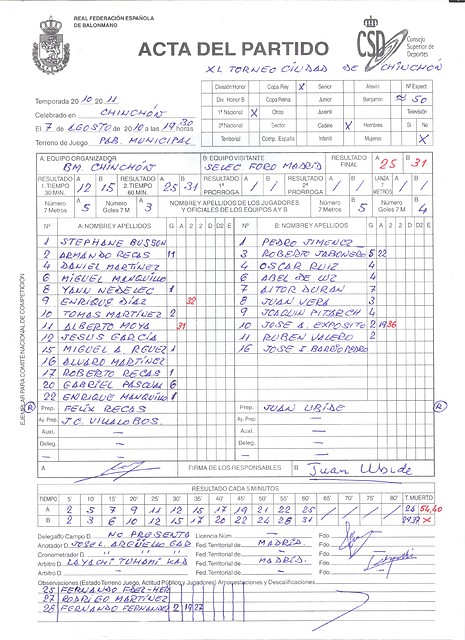 REAL FEDERACIÓN ESPAÑOLA
DE BALONMANO
ACTA DEL PARTIDO
CSD Consejo Superior de Deportes
XL TORNEO CIUDAD DE CHINCHÓN
Temporada 2010 2011
Celebrado en CHINCHÓN
El 7 AGOSTO de 2010 a las 19'30 horas
Terreno de Juego PAB. MUNICIPAL
División Honor Copa Rey X Senior Alevín Nº Espect.
Div. Honor B Copa Reina Junior Benjamín ≈ 50
1ª Nacional X Otros Juvenil Televisión
2ª Nacional Sector Cadete X Hombres S No
Territorial Comp. España Infantil Mujeres X
A: EQUIPO ORGANIZADOR B: EQUIPO VISITANTE RESULTADO FINAL A 25 B 31
BM CHINCHÓN SELEC FORO MADRID
RESULTADO 1. TIEMPO 30 MIN. A 12 B 15 RESULTADO 2. TIEMPO 60 MIN. A 25 B 31 RESULTADO 1ª PRORROGA A / B / RESULTADO 2ª PRORROGA A / B / LANZA 7 METROS A / B /
Número 7 Metros A 5 Número Goles 7 M A 3 NOMBRE Y APELLIDOS DE LOS JUGADORES Y OFICIALES DE LOS EQUIPOS A Y B Número 7 Metros B 5 Número Goles 7 M B 4
Nº A: NOMBRE Y APELLIDOS G A 2 2 2 D D2 E Nº B: NOMBRE Y APELLIDOS G A 2 2 2 D D2 E
1 STEPHANE BUSSON 1 PEDRO JIMENEZ
2 ARMANDO RECAS 11 3 ROBERTO JABONERO 5 22
4 DANIEL MARTÍNEZ 4 OSCAR RUIZ 4
6 MIGUEL MANQUILLO 6 ABEL DE LUZ 4
8 YANN NEDELEC 1 7 AITOR DURAN 7
9 ENRIQUE DÍAZ 32 8 JUAN VERA 3
10 TOMAS MARTÍNEZ 2 9 JOAQUIN PITARCH 4
11 ALBERTO MOYA 31 10 JOSE A. EXPOSITO 2 19 36
12 JESUS GARCÍA 11 RUBEN VALERO 2
15 MIGUEL A. RGUEZ 1 16 JOSE S BARRIOPEDRO
16 ALVARO MARTÍNEZ
17 ROBERTO RECAS 1
20 GABRIEL PASCUAL 6
22 ENRIQUE MANQUILLO 1
R Prep. FELIX RECAS Prep. JUAN URIDE R
Ay. Prep. J.C. VILLALOBOS. Ay. Prep. —
Auxil. — Auxil. —
Deleg. — Deleg. —
A FIRMA DE LOS RESPONSABLES B Juan Ubide
EJEMPLAR PARA COMITE NACIONAL DE COMPETICIÓN
RESULTADO CADA 5 MINUTOS
TIEMPO 5' 10' 15' 20' 25' 30' 35' 40' 45' 50' 55' 60' 65' 70' 75' 80' T. MUERTO
A 2 5 7 9 11 12 15 17 19 21 22 25 26 54,40
B 2 3 6 10 12 15 17 20 22 24 28 31 X
Delegado Campo D. NO PRESENTO Licencia Núm. — Fdo.
Anotador D. JOSE L. ARGÜELLO GAR Fed. Territorial de MADRID. Fdo.
Cronometrador D. " " " " Fed. Territorial de — Fdo.
Arbitro D. LAYACHI TUHAMI KAD Fed. Territorial de MADRID. Fdo.
Arbitro D. — Fed. Territorial de — Fdo.
Observaciones (Estado Terreno Juego, Actitud Público y Jugadores) Amonestaciones y Descalificaciones
25 FERNANDO FDEZ-HER
27 RODRIGO MARTÍNEZ
28 FERNANDO FERNANDE 2 19 27